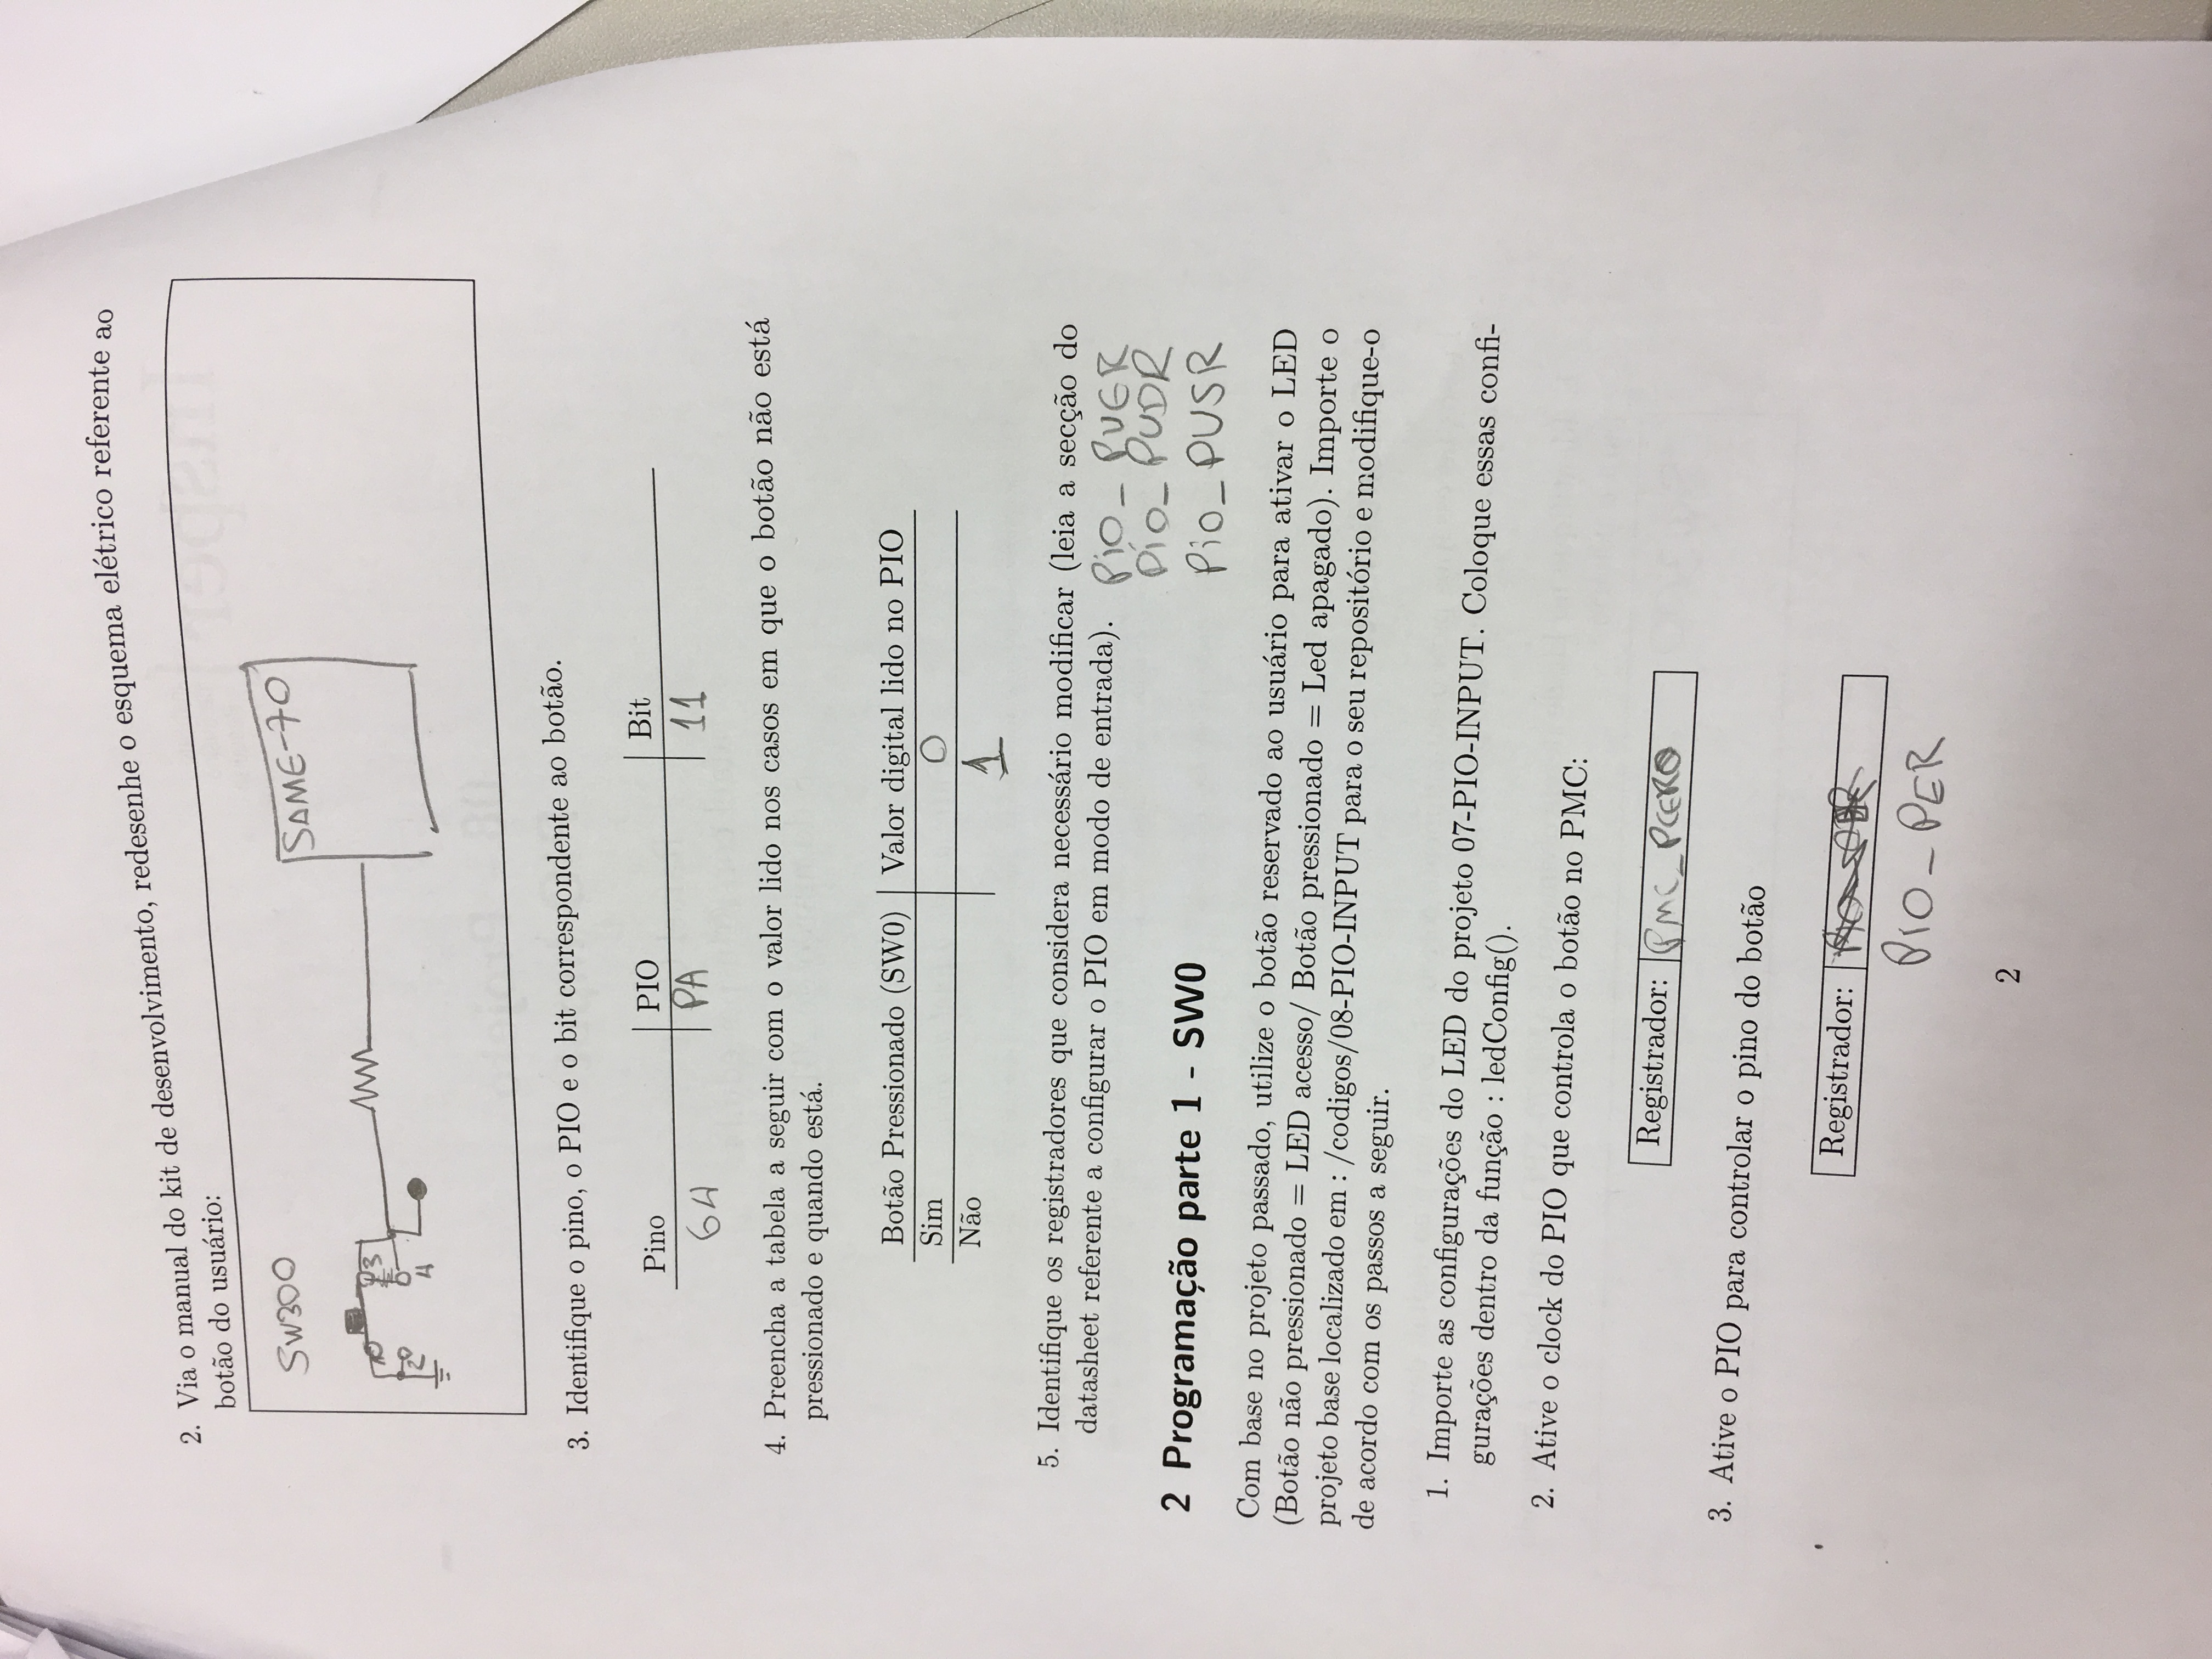 2. Via o manual do kit de desenvolvimento, redesenhe o esquema elétrico referente ao
botão do usuário:
SW300
SAME-70
1
3
2
4
3. Identifique o pino, o PIO e o bit correspondente ao botão.
Pino PIO Bit
64 PA 11
4. Preencha a tabela a seguir com o valor lido nos casos em que o botão não está
pressionado e quando está.
Botão Pressionado (SW0) Valor digital lido no PIO
Sim 0
Não 1
5. Identifique os registradores que considera necessário modificar (leia a secção do
datasheet referente a configurar o PIO em modo de entrada).
PiO_PUER
PiO_PUDR
PiO_PUSR
2 Programação parte 1 - SW0
Com base no projeto passado, utilize o botão reservado ao usuário para ativar o LED
(Botão não pressionado = LED acesso/ Botão pressionado = Led apagado). Importe o
projeto base localizado em : /codigos/08-PIO-INPUT para o seu repositório e modifique-o
de acordo com os passos a seguir.
1. Importe as configurações do LED do projeto 07-PIO-INPUT. Coloque essas confi-
gurações dentro da função : ledConfig().
2. Ative o clock do PIO que controla o botão no PMC:
Registrador: PMC_PCER0
3. Ative o PIO para controlar o pino do botão
Registrador:
PiO_PER
2